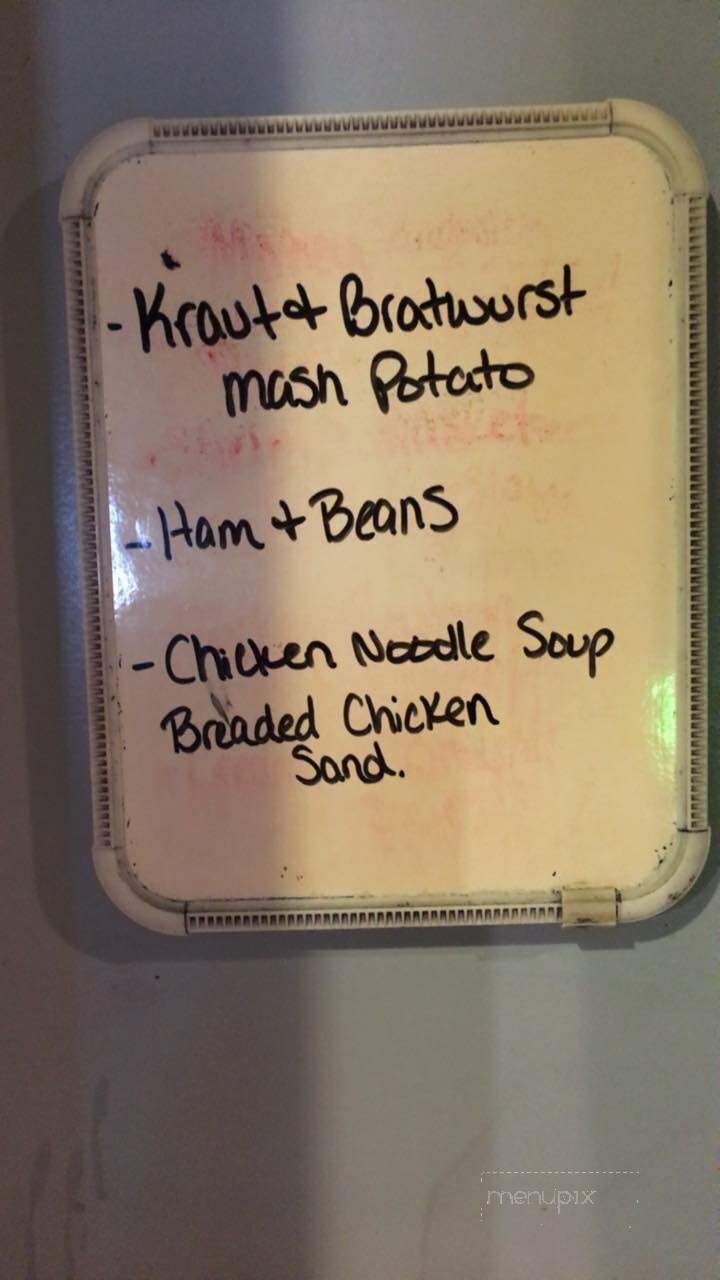 - Kraut & Bratwurst
mash Potato
- Ham + Beans
- Chicken Noodle Soup
Breaded Chicken
Sand.
menupix